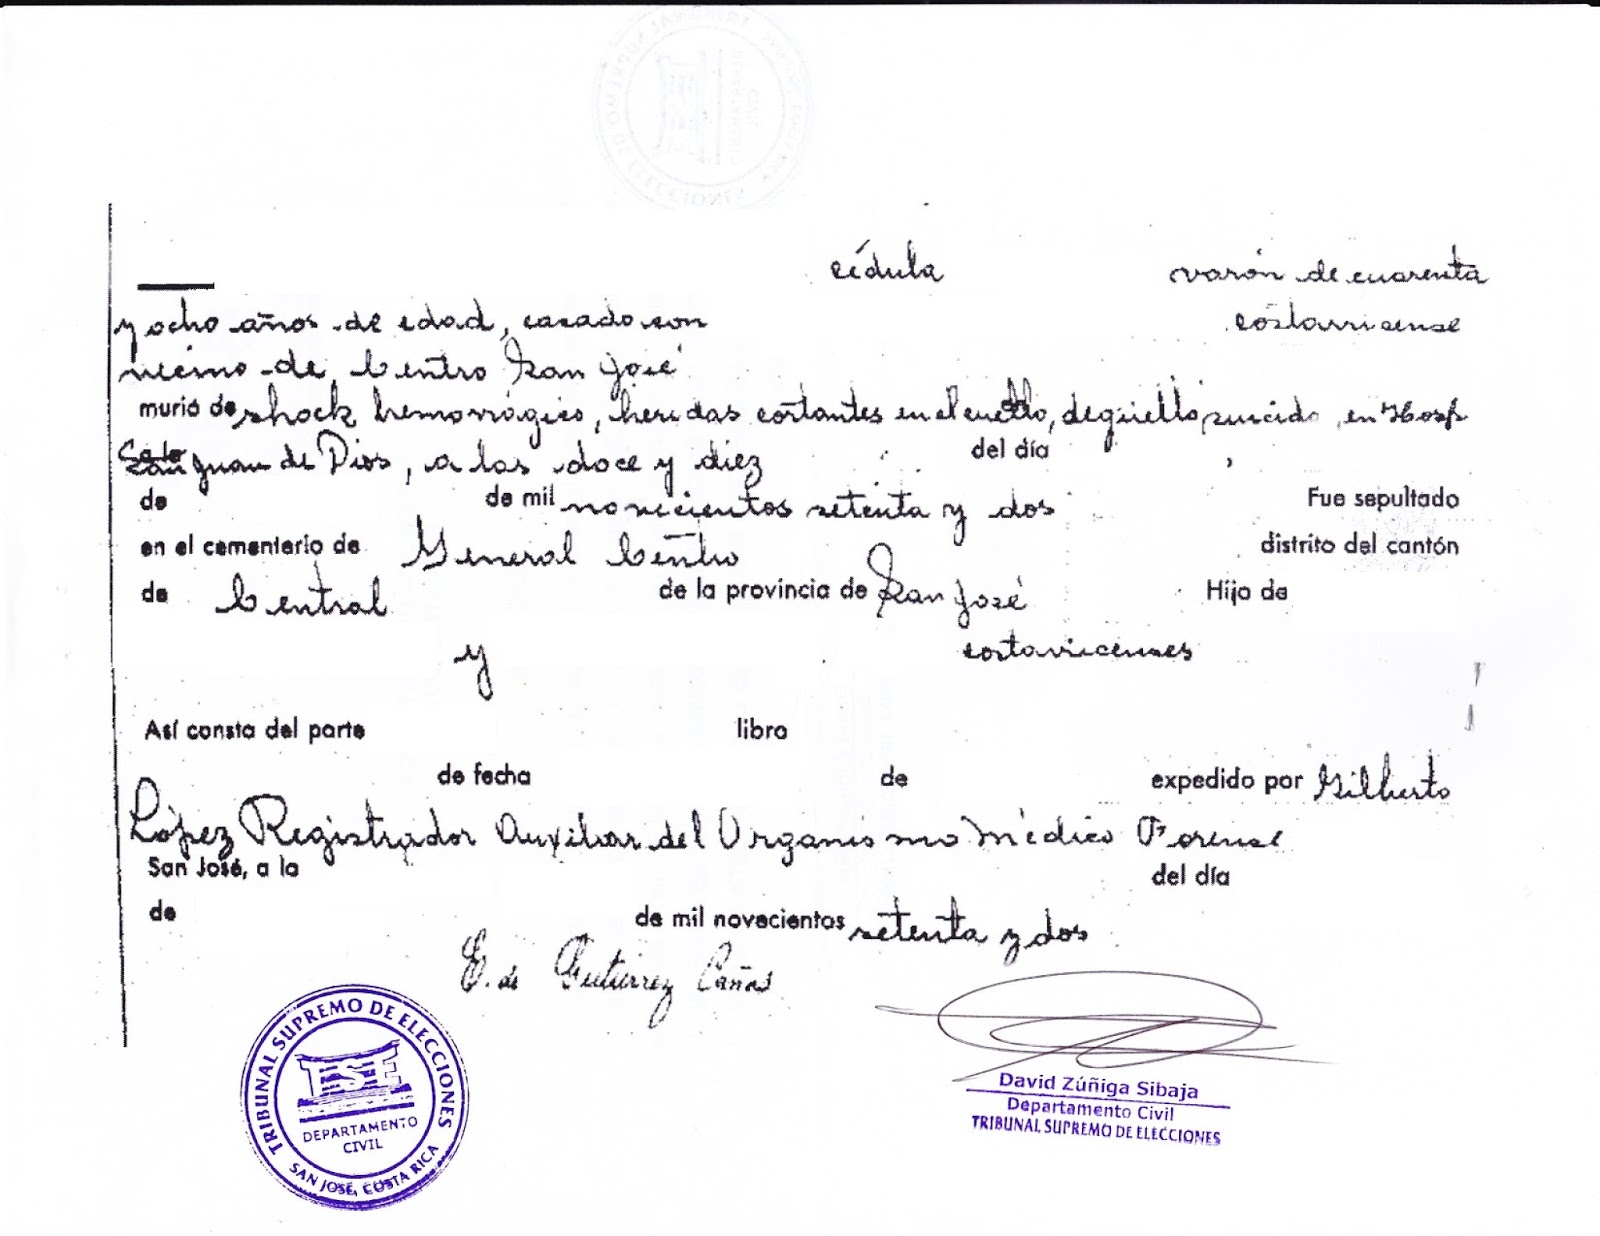 cédula varón de cuarenta
y ocho años de edad, casado con costarricense
vecino de Centro San José
murió de shock hemorrágico, heridas cortantes en el cuello, degüello, suicido, en Hosp
San Juan de Dios, a las doce y diez del día ,
de de mil novecientos setenta y dos Fue sepultado
en el cementerio de General Centro distrito del cantón
de Central de la provincia de San José Hijo de
y costarricenses
Así consta del parte libro
de fecha de expedido por Gilberto
López Registrador Auxiliar del Organismo Médico Forense
San José, a la del día
de de mil novecientos setenta y dos
E. de Gutiérrez Cañas
TRIBUNAL SUPREMO DE ELECCIONES
TSE
DEPARTAMENTO
CIVIL
SAN JOSÉ, COSTA RICA
David Zúñiga Sibaja
Departamento Civil
TRIBUNAL SUPREMO DE ELECCIONES